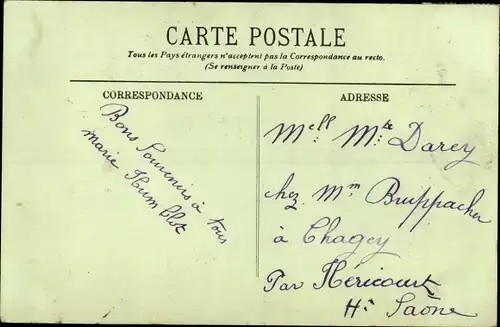 CARTE POSTALE
Tous les Pays étrangers n'acceptent pas la Correspondance au recto.
(Se renseigner à la Poste)
CORRESPONDANCE
Bons Souvenirs à tous
marie Humblot
ADRESSE
Mell Mte Darcy
chez Mm Bruppacher
à Chagey
Par Héricourt
Hte Saône